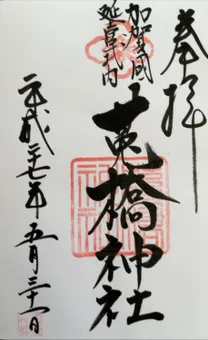 奉拝
加賀国
延喜式内
菟橋神社
平成二十七年五月三十一日